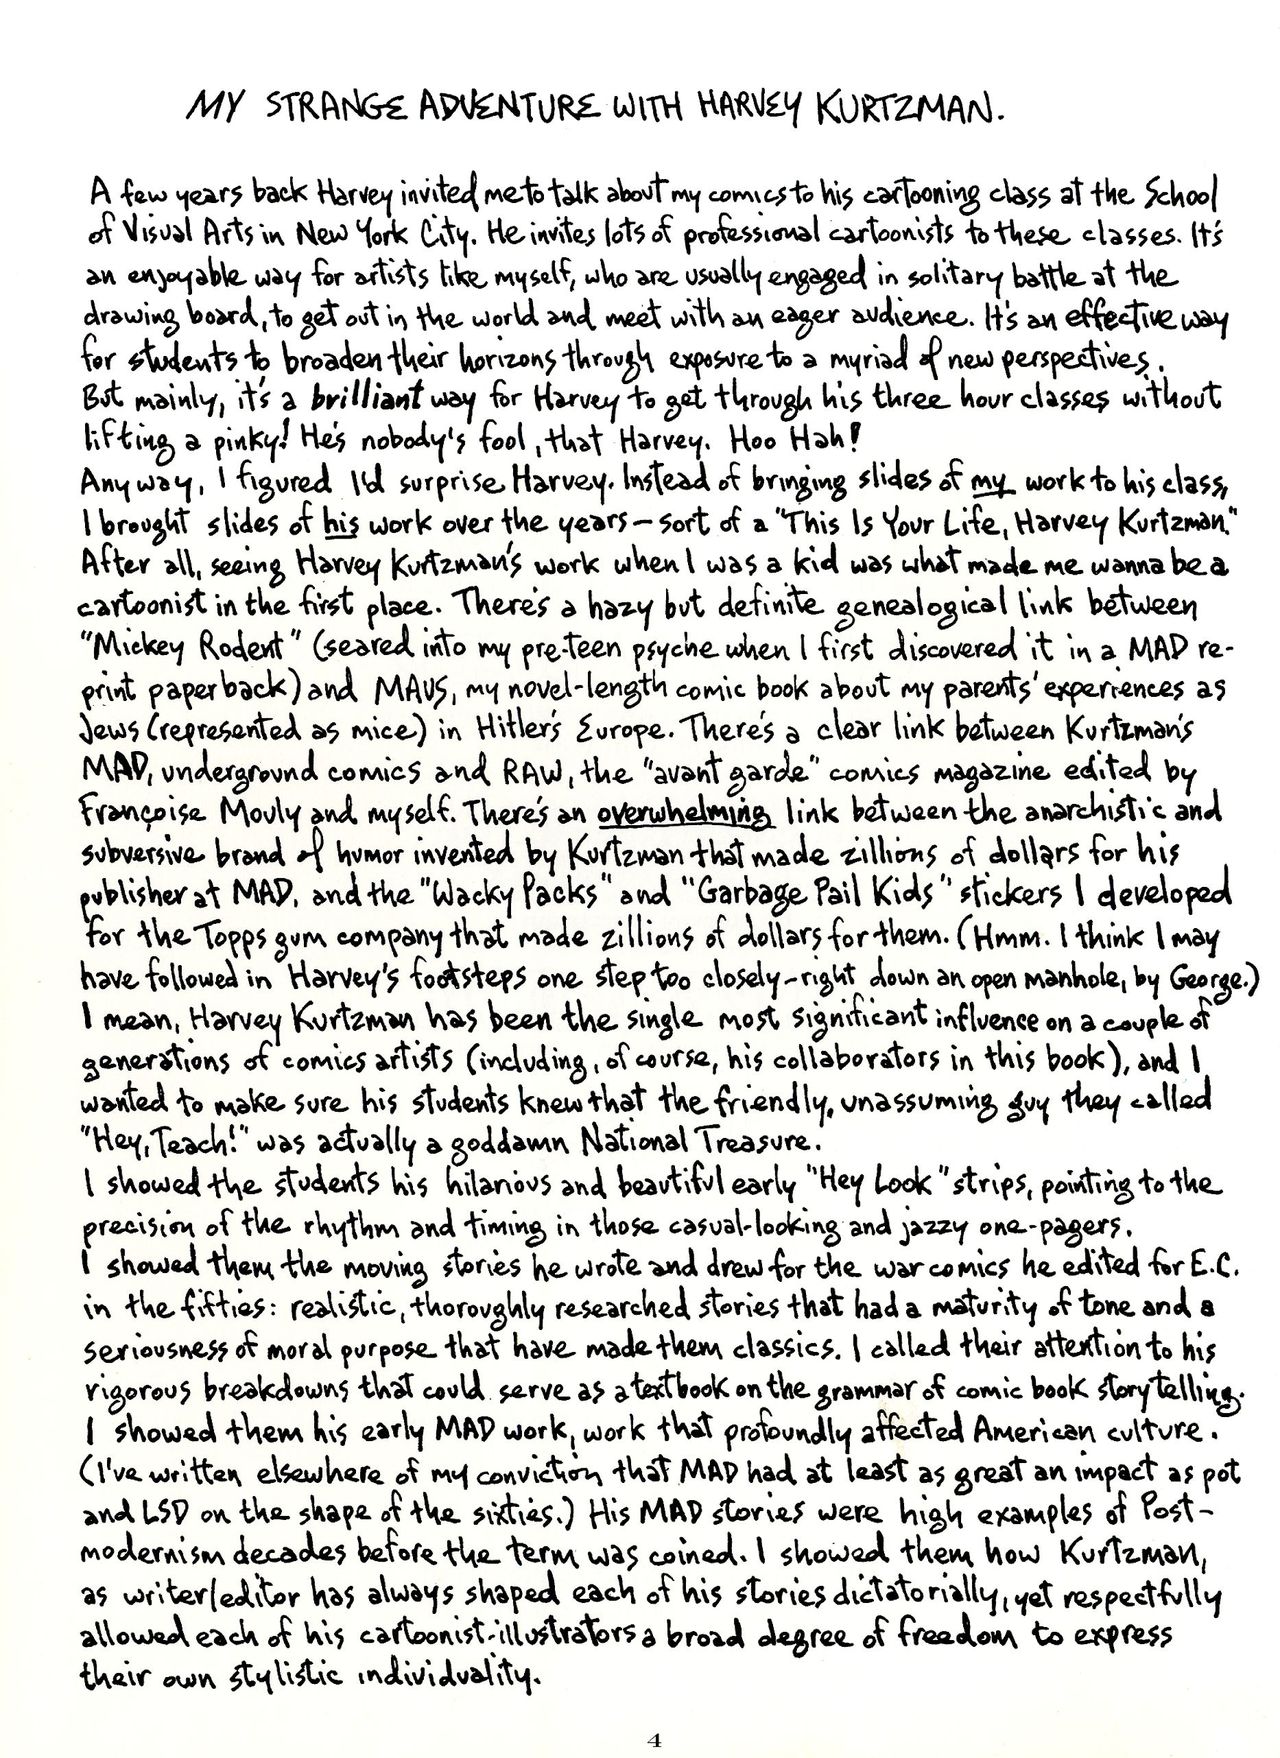 MY STRANGE ADVENTURE WITH HARVEY KURTZMAN.
A few years back Harvey invited me to talk about my comics to his cartooning class at the School
of Visual Arts in New York City. He invites lots of professional cartoonists to these classes. It's
an enjoyable way for artists like myself, who are usually engaged in solitary battle at the
drawing board, to get out in the world and meet with an eager audience. It's an effective way
for students to broaden their horizons through exposure to a myriad of new perspectives.
But mainly, it's a brilliant way for Harvey to get through his three hour classes without
lifting a pinky! He's nobody's fool, that Harvey. Hoo Hah!
Anyway, I figured I'd surprise Harvey. Instead of bringing slides of my work to his class,
I brought slides of his work over the years—sort of a "This Is Your Life, Harvey Kurtzman."
After all, seeing Harvey Kurtzman's work when I was a kid was what made me wanna be a
cartoonist in the first place. There's a hazy but definite genealogical link between
"Mickey Rodent" (seared into my pre-teen psyche when I first discovered it in a MAD re-
print paperback) and MAUS, my novel-length comic book about my parents' experiences as
Jews (represented as mice) in Hitler's Europe. There's a clear link between Kurtzman's
MAD, underground comics and RAW, the "avant garde" comics magazine edited by
Françoise Mouly and myself. There's an overwhelming link between the anarchistic and
subversive brand of humor invented by Kurtzman that made zillions of dollars for his
publisher at MAD, and the "Wacky Packs" and "Garbage Pail Kids" stickers I developed
for the Topps gum company that made zillions of dollars for them. (Hmm. I think I may
have followed in Harvey's footsteps one step too closely—right down an open manhole, by George.)
I mean, Harvey Kurtzman has been the single most significant influence on a couple of
generations of comics artists (including, of course, his collaborators in this book), and I
wanted to make sure his students knew that the friendly, unassuming guy they called
"Hey, Teach!" was actually a goddamn National Treasure.
I showed the students his hilarious and beautiful early "Hey Look" strips, pointing to the
precision of the rhythm and timing in those casual-looking and jazzy one-pagers.
I showed them the moving stories he wrote and drew for the war comics he edited for E.C.
in the fifties: realistic, thoroughly researched stories that had a maturity of tone and a
seriousness of moral purpose that have made them classics. I called their attention to his
rigorous breakdowns that could serve as a textbook on the grammar of comic book storytelling.
I showed them his early MAD work, work that profoundly affected American culture.
(I've written elsewhere of my conviction that MAD had at least as great an impact as pot
and LSD on the shape of the sixties.) His MAD stories were high examples of Post-
modernism decades before the term was coined. I showed them how Kurtzman,
as writer/editor has always shaped each of his stories dictatorially, yet respectfully
allowed each of his cartoonist-illustrators a broad degree of freedom to express
their own stylistic individuality.
4